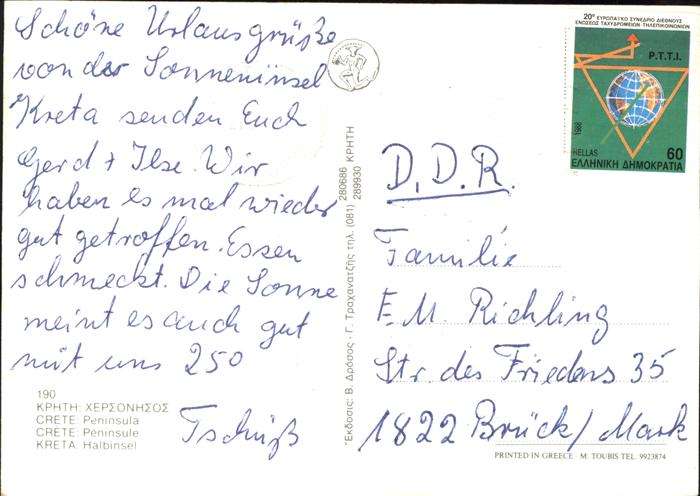 Schöne Urlausgrüße
von der Sonneninsel
Kreta senden Euch
Gerd + Ilse. Wir
haben es mal wieder
gut getroffen. Essen
schmeckt. Die Sonne
meint es auch gut
mit uns 250
Tschüß
190
ΚΡΗΤΗ: ΧΕΡΣΟΝΗΣΟΣ
CRETE: Peninsula
CRETE: Péninsule
KRETA: Halbinsel
Έκδοσις: Β. Δρόσος - Γ. Τραχανατζής τηλ. (081) 280686 289930 ΚΡΗΤΗ
20ο ΕΥΡΩΠΑΪΚΟ ΣΥΝΕΔΡΙΟ ΔΙΕΘΝΟΥΣ
ΕΝΩΣΕΩΣ ΤΑΧΥΔΡΟΜΕΙΩΝ ΤΗΛΕΠΙΚΟΙΝΩΝΙΩΝ
P.T.T.I.
1988
HELLAS 60
ΕΛΛΗΝΙΚΗ ΔΗΜΟΚΡΑΤΙΑ
D.D.R.
Familie
E. M. Richling
Str. des Friedens 35
1822 Brück/Mark
PRINTED IN GREECE - M. TOUBIS TEL. 9923874